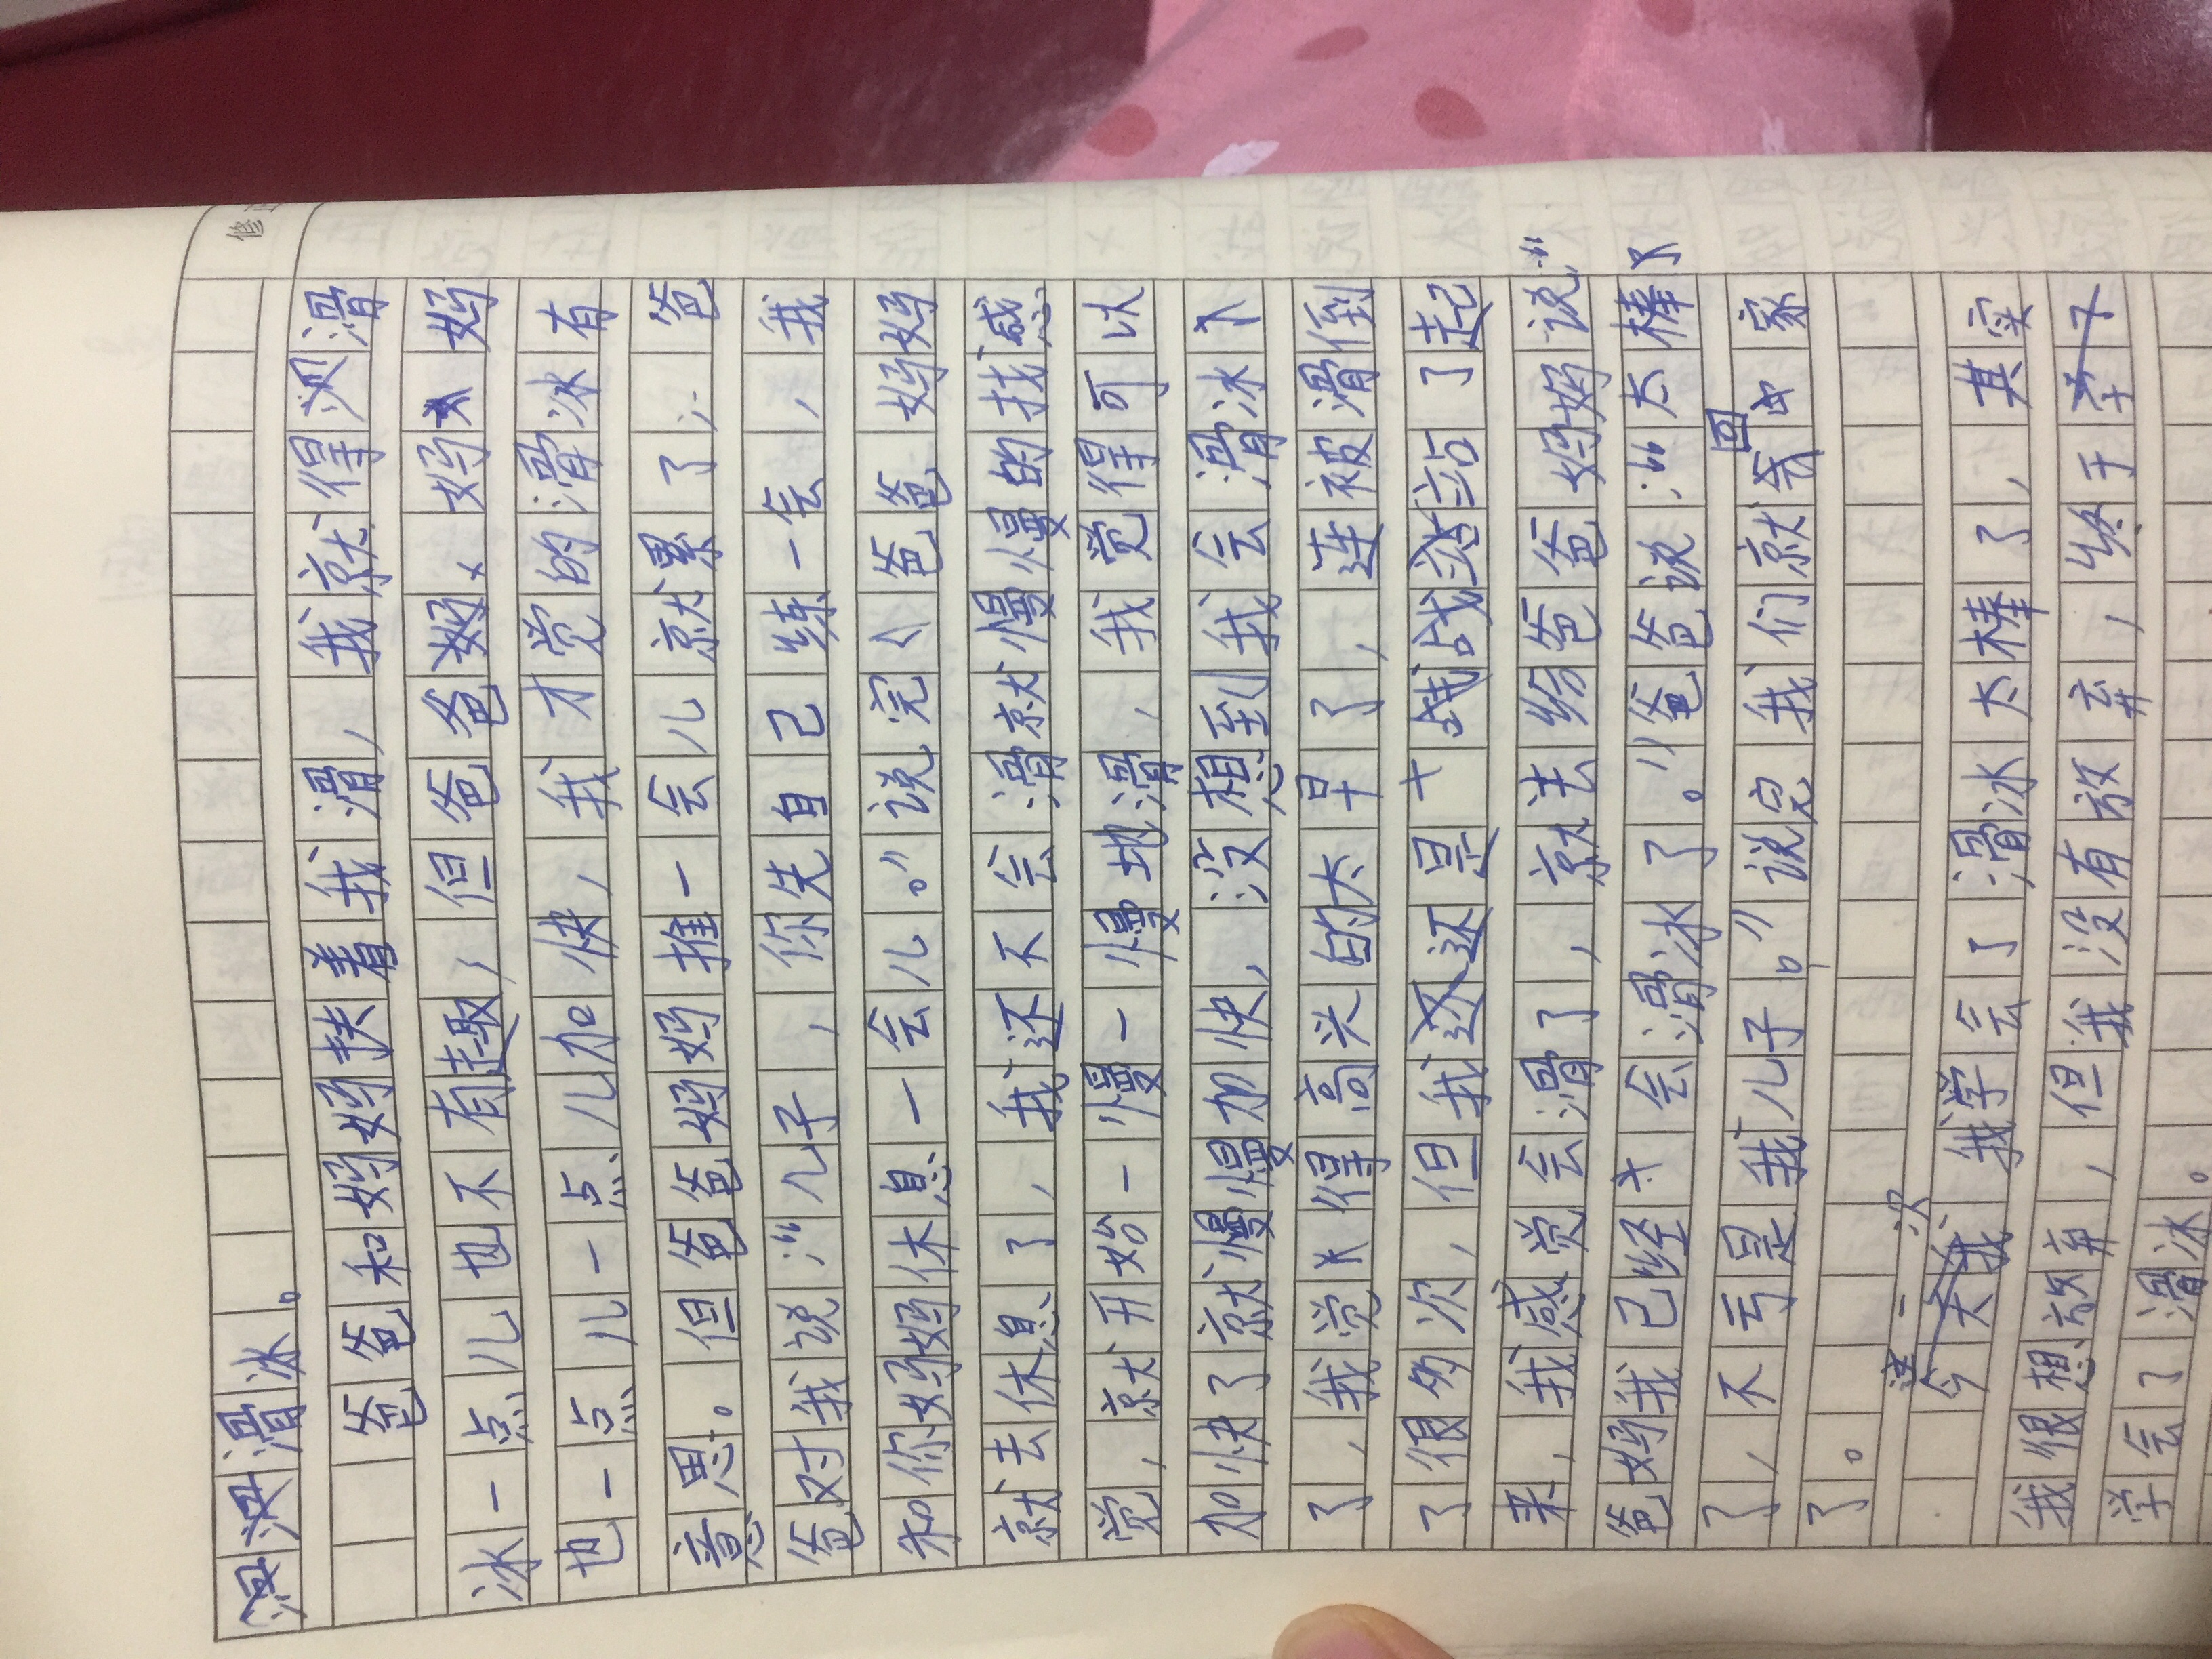 修
滑冰。
爸爸和妈妈扶着我滑,我就得滑
冰一点儿也不有趣,但爸爸妈妈
也一点儿一点儿加快,我才觉的滑冰有
意思。但爸爸妈妈推一会儿就累了,爸
爸对我说:“儿子,你先自己练一会,我
和你妈妈休息一会儿。”说完爸爸妈妈
就去休息了,我还不会滑就慢慢的找感
觉,就开始一慢一慢地滑,我觉得可以
加快了就慢慢加快,没想到我会滑冰
了,我觉得高兴的太早了,连被滑倒
了很多次,但我还是站了起
来,我感觉会滑了,就去给爸爸妈妈说:“
爸妈我已经会滑冰了。”爸爸说:“太棒了
了,不亏是我儿子。”说完我们就回家
了。
这一次我学会了滑冰太棒了,其实
我很想放弃,但我没有放弃,终于
学会了滑冰。